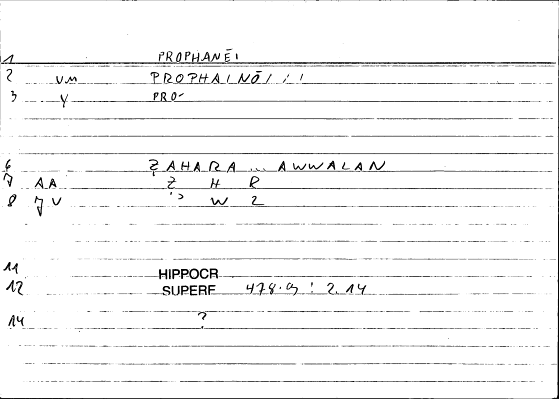 1 PROPHANĒI
2 VM PROPHAINŌ/ / /
3 Y PRO-
6 ẒAHARA ... AWWALAN
7 AA Ẓ H R
8 JV ʾ W L
11 HIPPOCR
12 SUPERF 478.9 : 2.14
14 ?